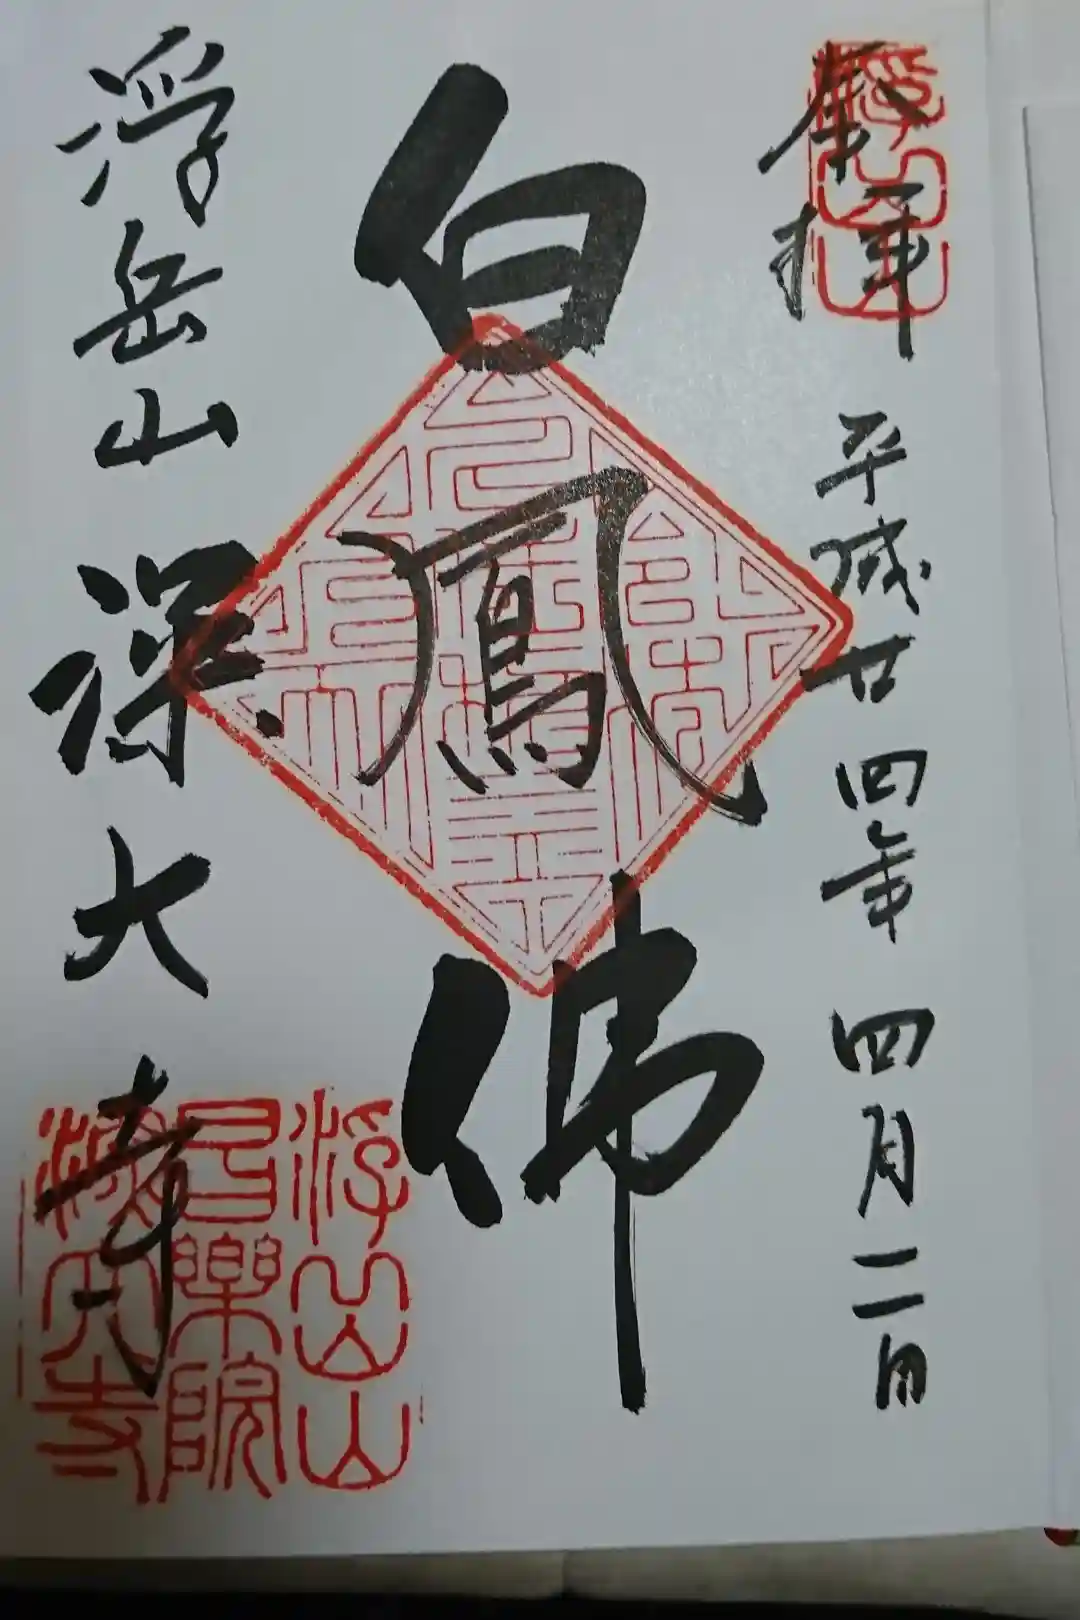 奉拝
平成廿四年四月二日
白鳳佛
浮岳山深大寺
浮岳山
昌樂院
深大寺